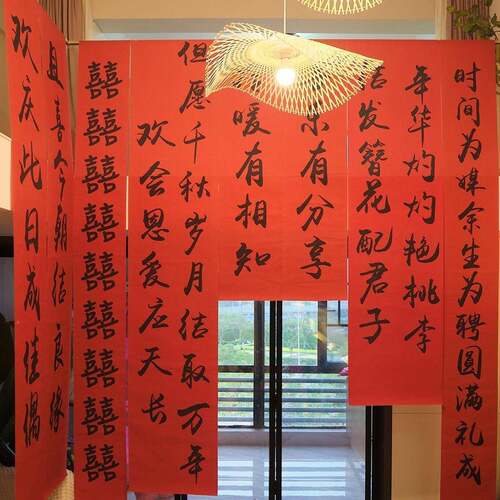 时间为媒余生为聘圆满礼成
年华灼灼艳桃李
结发簪花配君子
乐有分享
暖有相知
但愿千秋岁月结取万年
欢会恩爱应天长
囍囍囍囍囍囍囍囍囍
且喜今朝结良缘
欢庆此日成佳偶